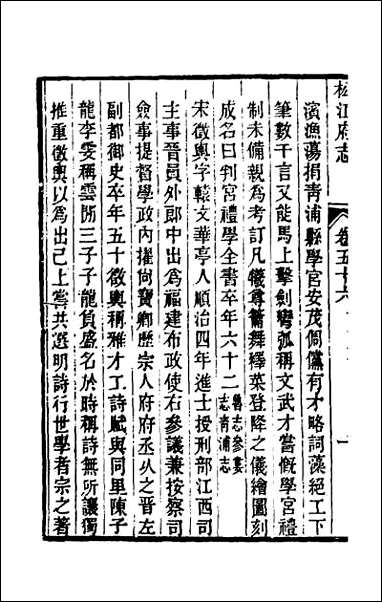 松江府志
卷五十六
濱漁蕩捐靑浦縣學宮安茂倜儻有才略詞藻絕工下
筆數千言又能馬上擊劍彎弧稱文武才嘗慨學宮禮
制未備親為考訂凡犧尊籥舞繹菜登降之儀繪圖刻
成名曰判宮禮學全書卒年六十二舊志參婁志靑浦志
宋徵輿字轅文華亭人順治四年進士授刑部江西司
主事晉員外郎中出為福建布政使右參議兼按察司
僉事提督學政內擢尚寶卿歷宗人府府丞久之晉左
副都御史卒年五十徵輿稱雅才工詩賦與同里陳子
龍李雯稱雲間三子子龍負盛名於時稱詩無所讓獨
推重徵輿以為出己上嘗共選明詩行世學者宗之著